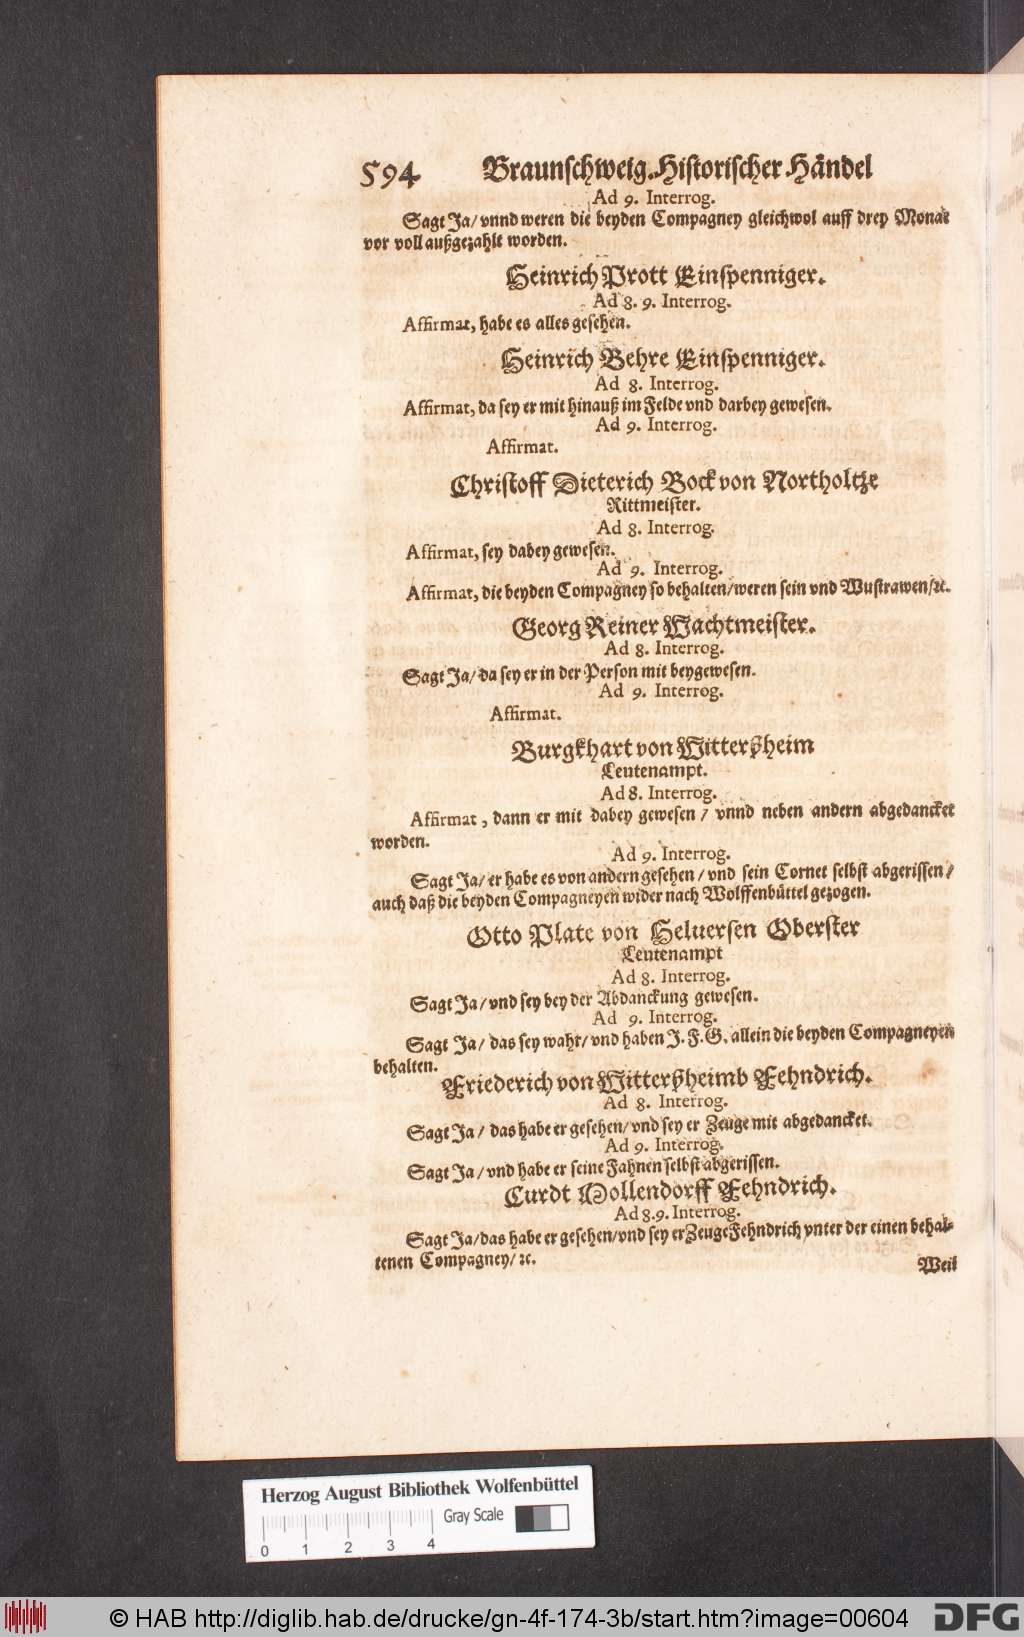 594 Braunschweig. Historischer Händel
Ad 9. Interrog.
Sagt Ja/ vnnd weren die beyden Compagney gleichwol auff drey Monat
vor voll außgezahlt worden.
Heinrich Prott Einspenniger.
Ad 8. 9. Interrog.
Affirmat, habe es alles gesehen.
Heinrich Behre Einspenniger.
Ad 8. Interrog.
Affirmat, da sey er mit hinauß im Felde vnd darbey gewesen.
Ad 9. Interrog.
Affirmat.
Christoff Dieterich Bock von Northoltze
Rittmeister.
Ad 8. Interrog.
Affirmat, sey dabey gewesen.
Ad 9. Interrog.
Affirmat, die beyden Compagney so behalten/ weren sein vnd Wustrawen/ ꝛc.
Georg Reiner Wachtmeister.
Ad 8. Interrog.
Sagt Ja/ da sey er in der Person mit beygewesen.
Ad 9. Interrog.
Affirmat.
Burgkhart von Witterßheim
Leutenampt.
Ad 8. Interrog.
Affirmat, dann er mit dabey gewesen / vnnd neben andern abgedancket
worden.
Ad 9. Interrog.
Sagt Ja/ er habe es von andern gesehen / vnd sein Cornet selbst abgerissen /
auch daß die beyden Compagneyen wider nach Wolffenbüttel gezogen.
Otto Plate von Heluersen Oberster
Leutenampt
Ad 8. Interrog.
Sagt Ja/ vnd sey bey der Abdanckung gewesen.
Ad 9. Interrog.
Sagt Ja/ das sey wahr/ vnd haben J. F. G. allein die beyden Compagneyen
behalten.
Friederich von Witterßheimb Fehndrich.
Ad 8. Interrog.
Sagt Ja / das habe er gesehen/ vnd sey er Zeuge mit abgedancket.
Ad 9. Interrog.
Sagt Ja / vnd habe er seine Fahnen selbst abgerissen.
Curdt Mollendorff Fehndrich.
Ad 8. 9. Interrog.
Sagt Ja/ das habe er gesehen/ vnd sey er Zeuge Fehndrich vnter der einen behal-
tenen Compagney/ ꝛc.
Weil
Herzog August Bibliothek Wolfenbüttel
Gray Scale
0 1 2 3 4
© HAB http://diglib.hab.de/drucke/gn-4f-174-3b/start.htm?image=00604
DFG